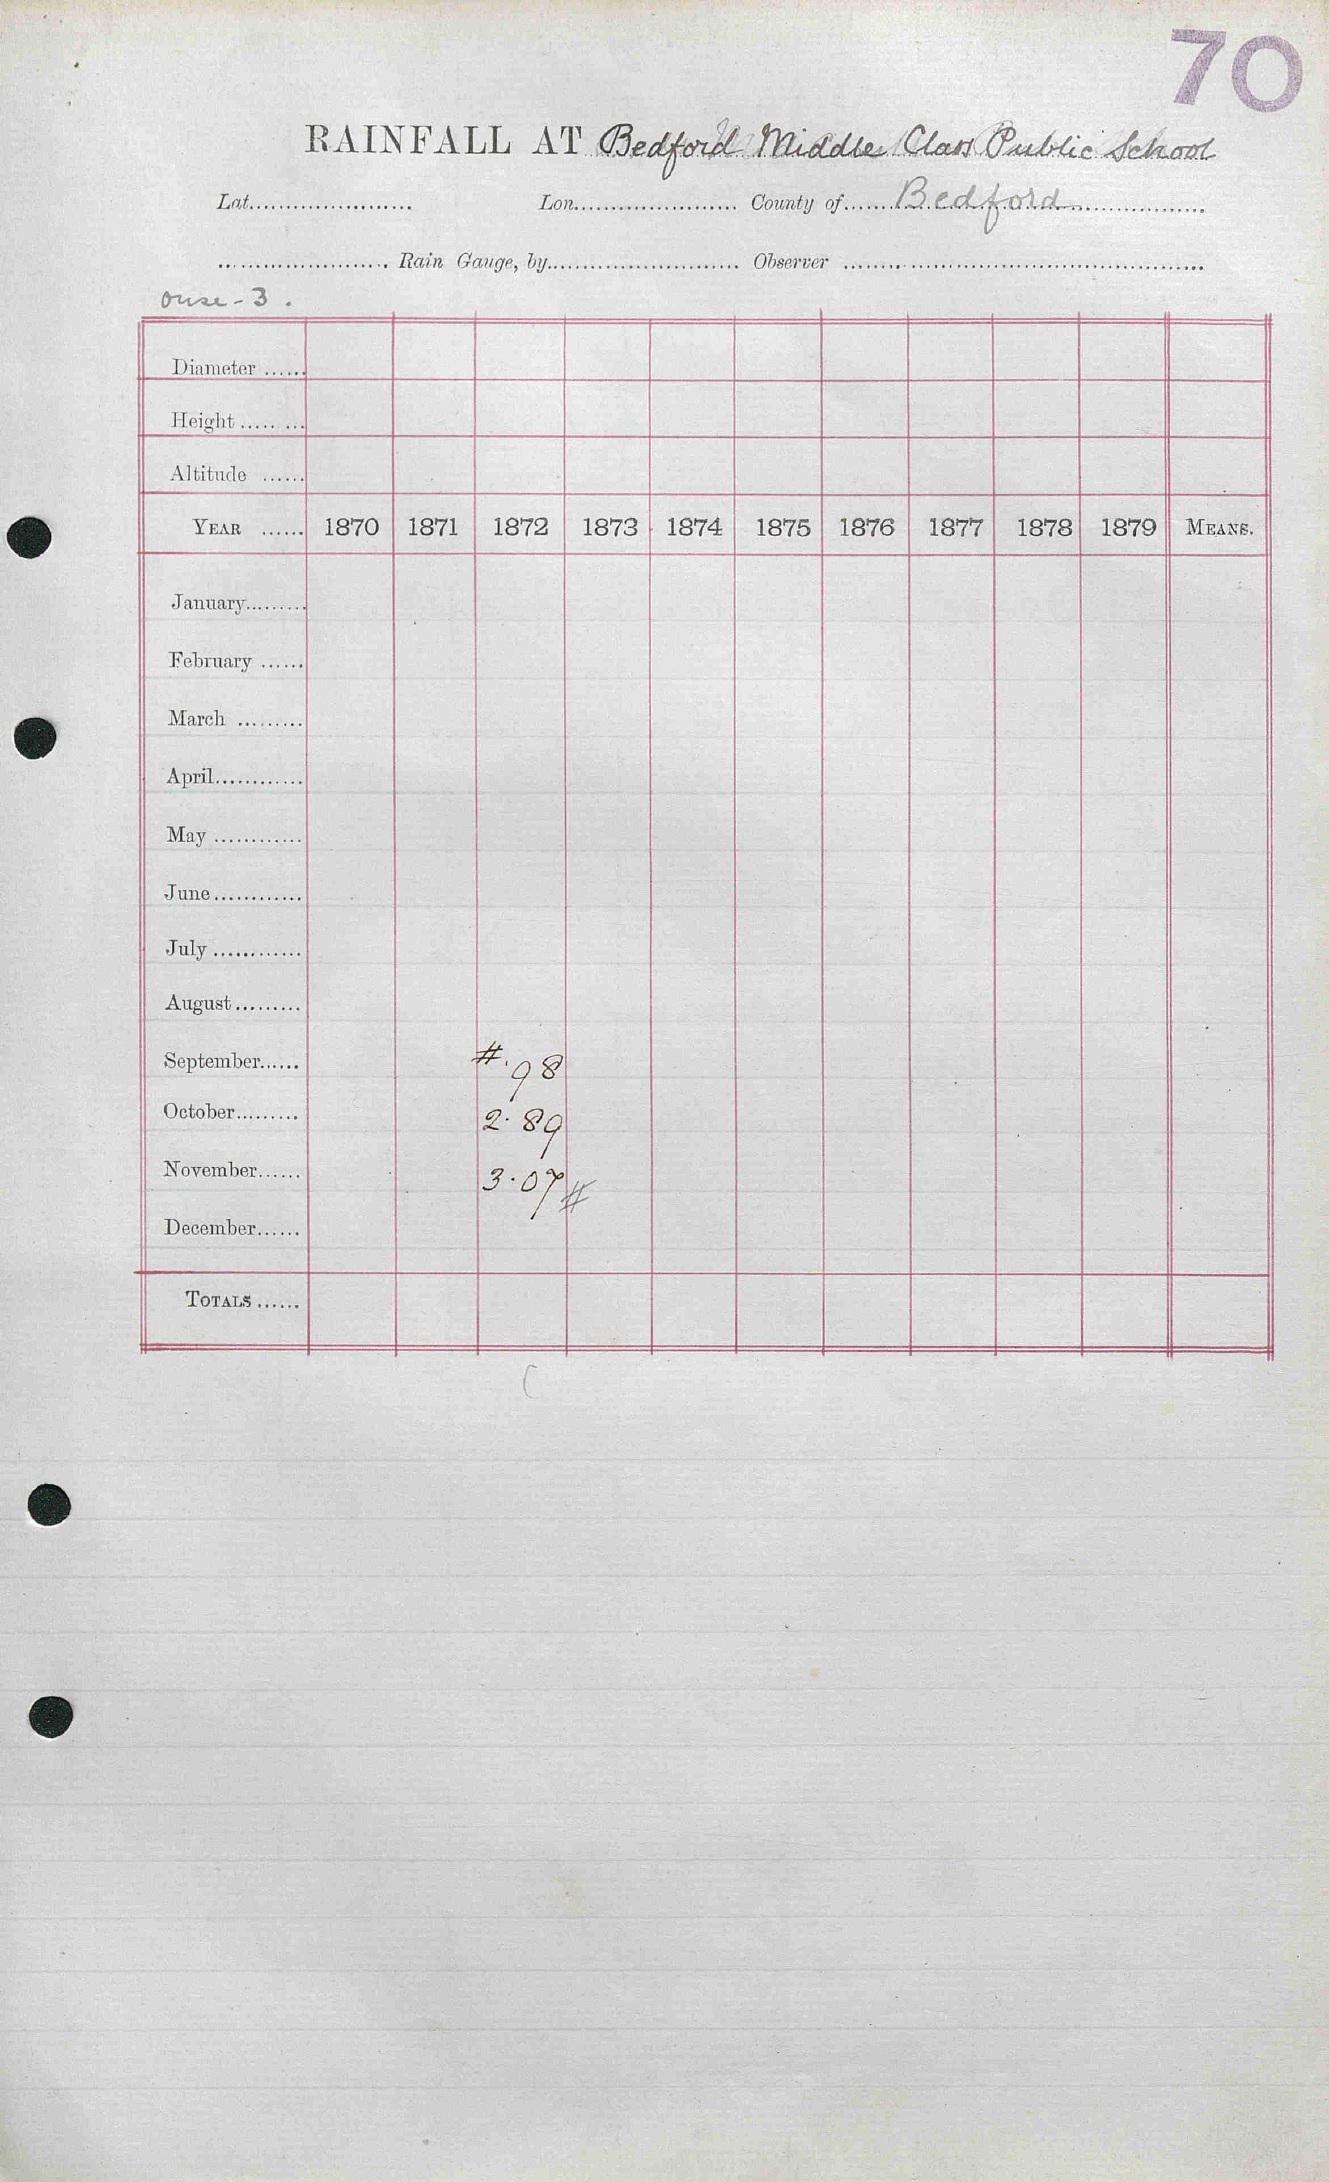 70
RAINFALL AT Bedford Middle Class Public School
Lat...................... Lon...................... County of.......Bedford..................
....................... Rain Gauge, by.......................... Observer ................................................
Ouse - 3 .
Diameter ......
Height ..... ...
Altitude ......
YEAR ...... 1870 1871 1872 1873 1874 1875 1876 1877 1878 1879 MEANS.
January.........
February ......
March .........
April............
May ............
June............
July ............
August.........
September...... # .98
October......... 2.89
November...... 3.07 #
December......
TOTALS ......